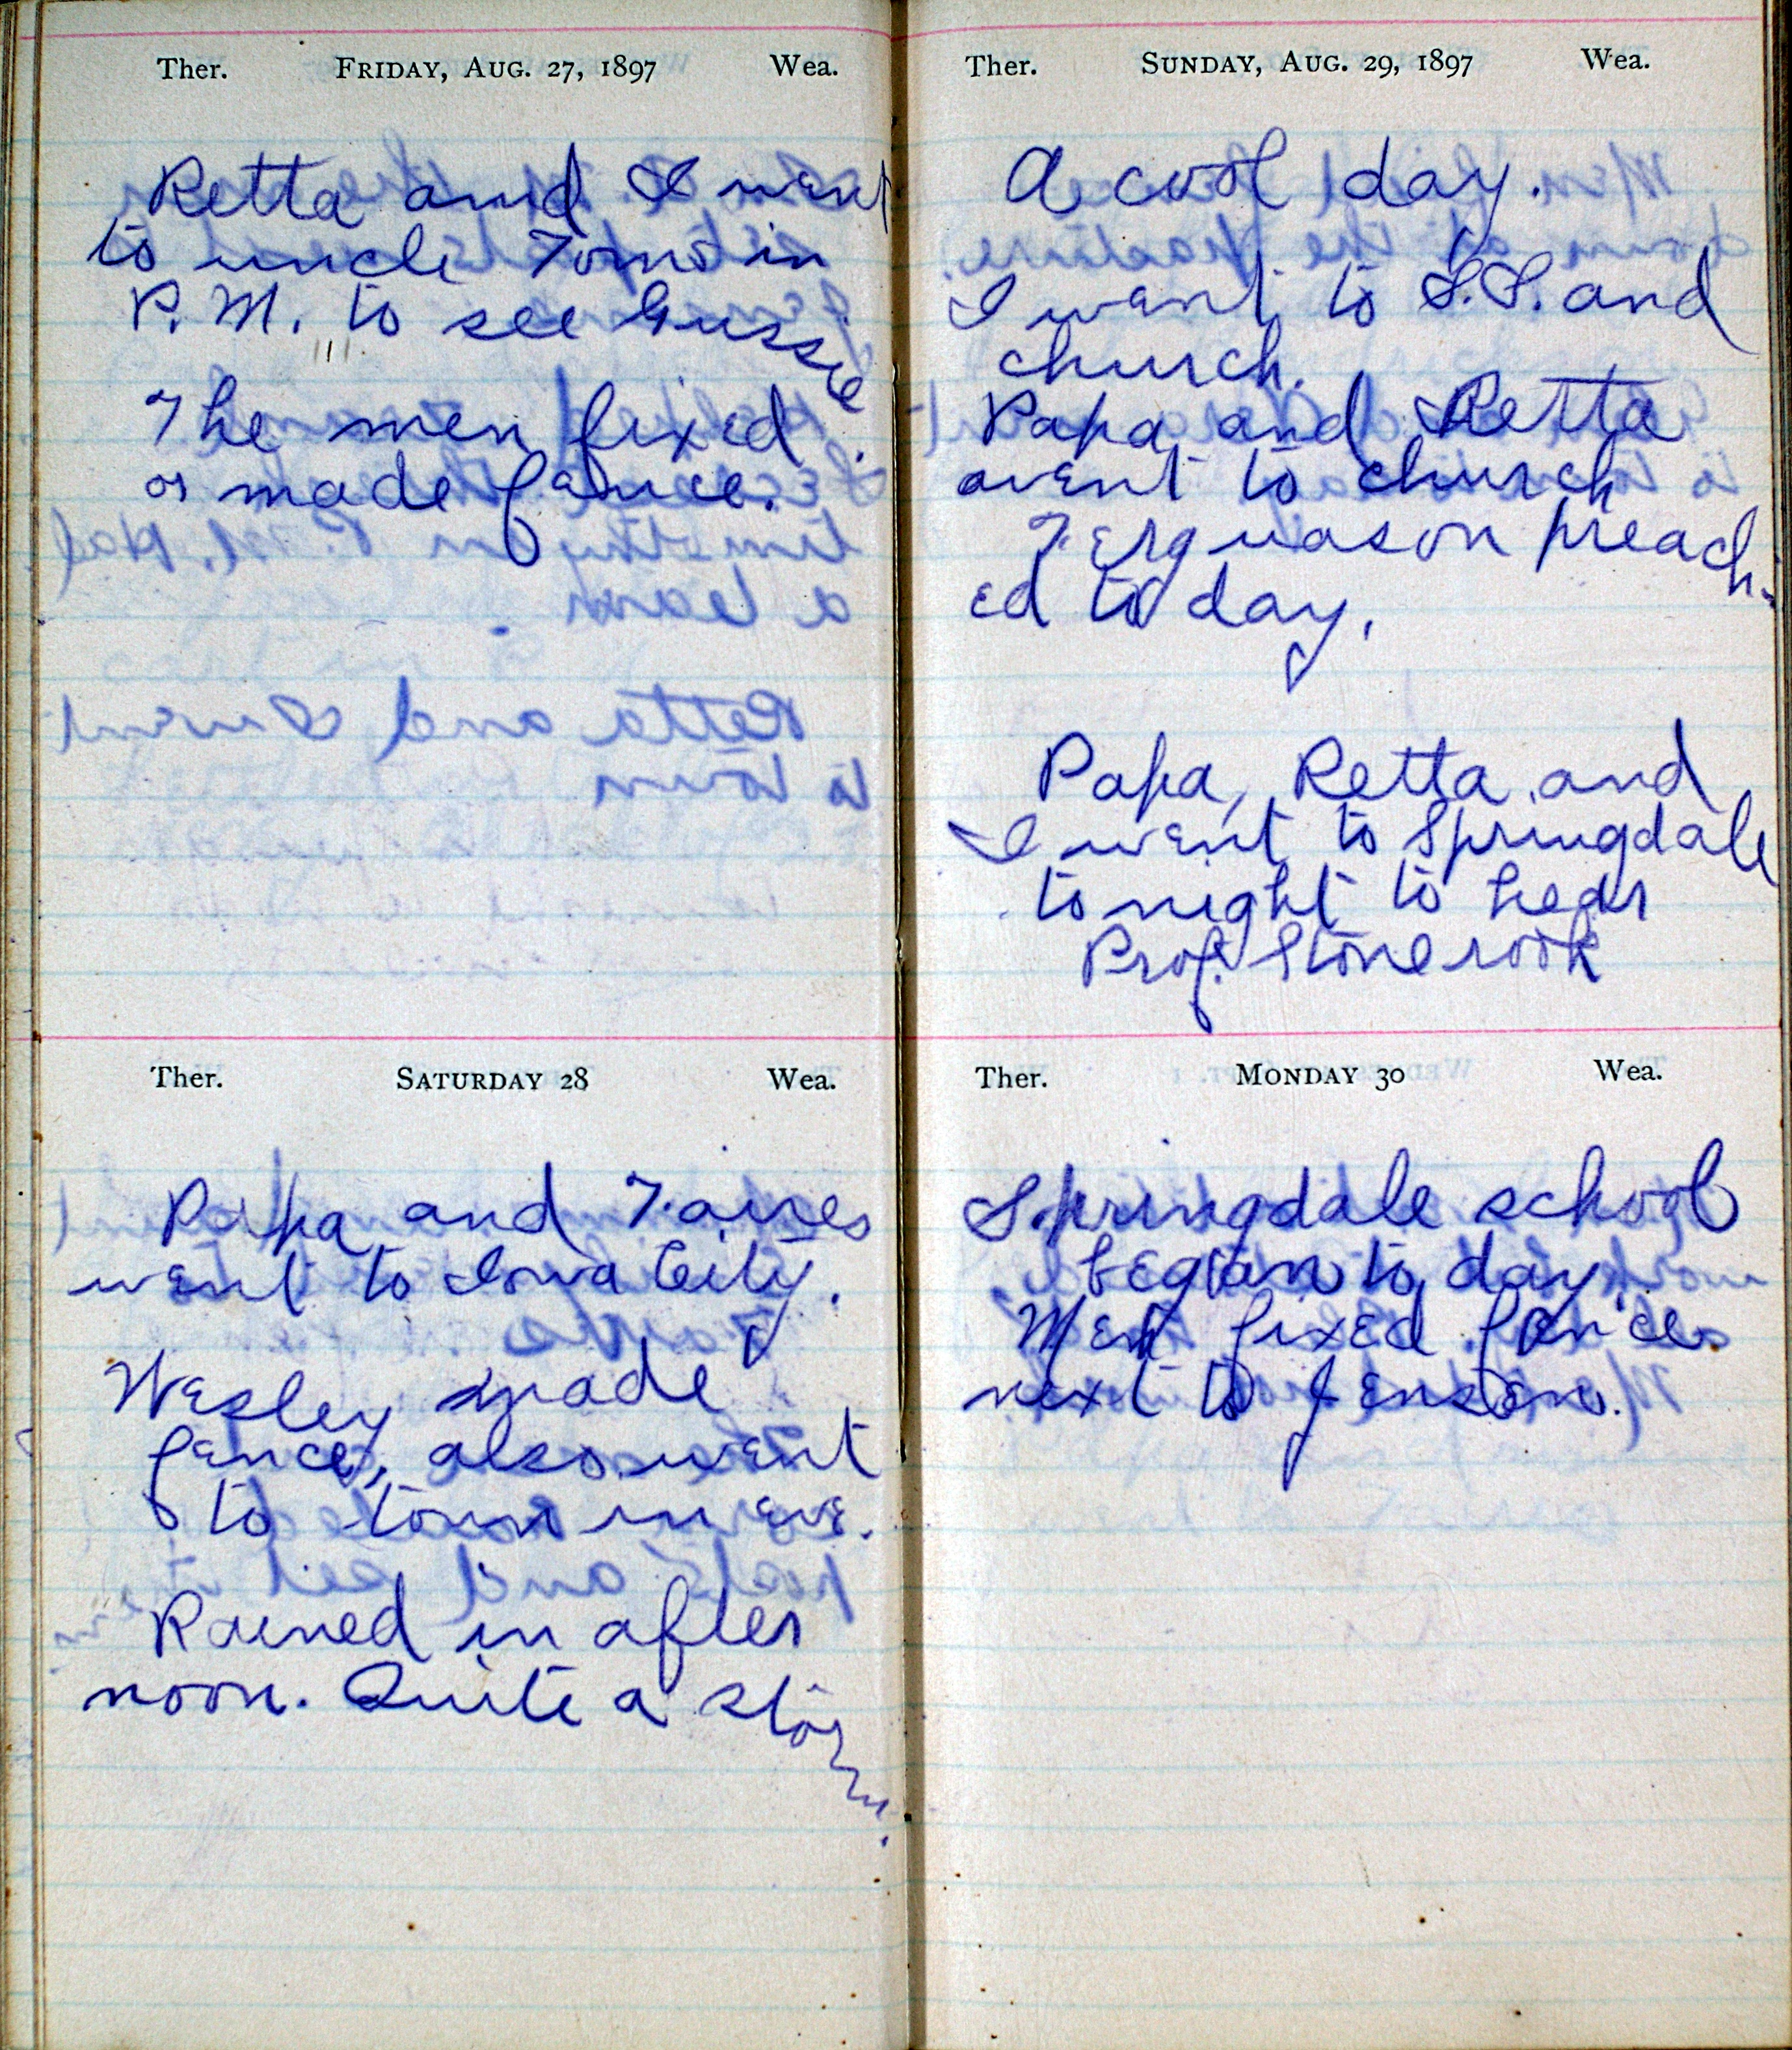 Ther. FRIDAY, AUG. 27, 1897 Wea.
Retta and I went
to uncle Toms in
P.M. to see Gussie
The men fixed
or made fence.
Ther. SATURDAY 28 Wea.
Papa and Faires
went to Iowa City.
Wesley made
fence, also went
to town in eve.
Rained in after
noon. Quite a storm.
Ther. SUNDAY, AUG. 29, 1897 Wea.
A cool day.
I went to S.S. and
church.
Papa and Retta
went to church
Ferguason preach-
ed to day.
Papa, Retta and
I went to Springdale
to night to hear
Prof. Stonerook
Ther. MONDAY 30 Wea.
Springdale school
began to day.
Men fixed fences
next to Jensen.